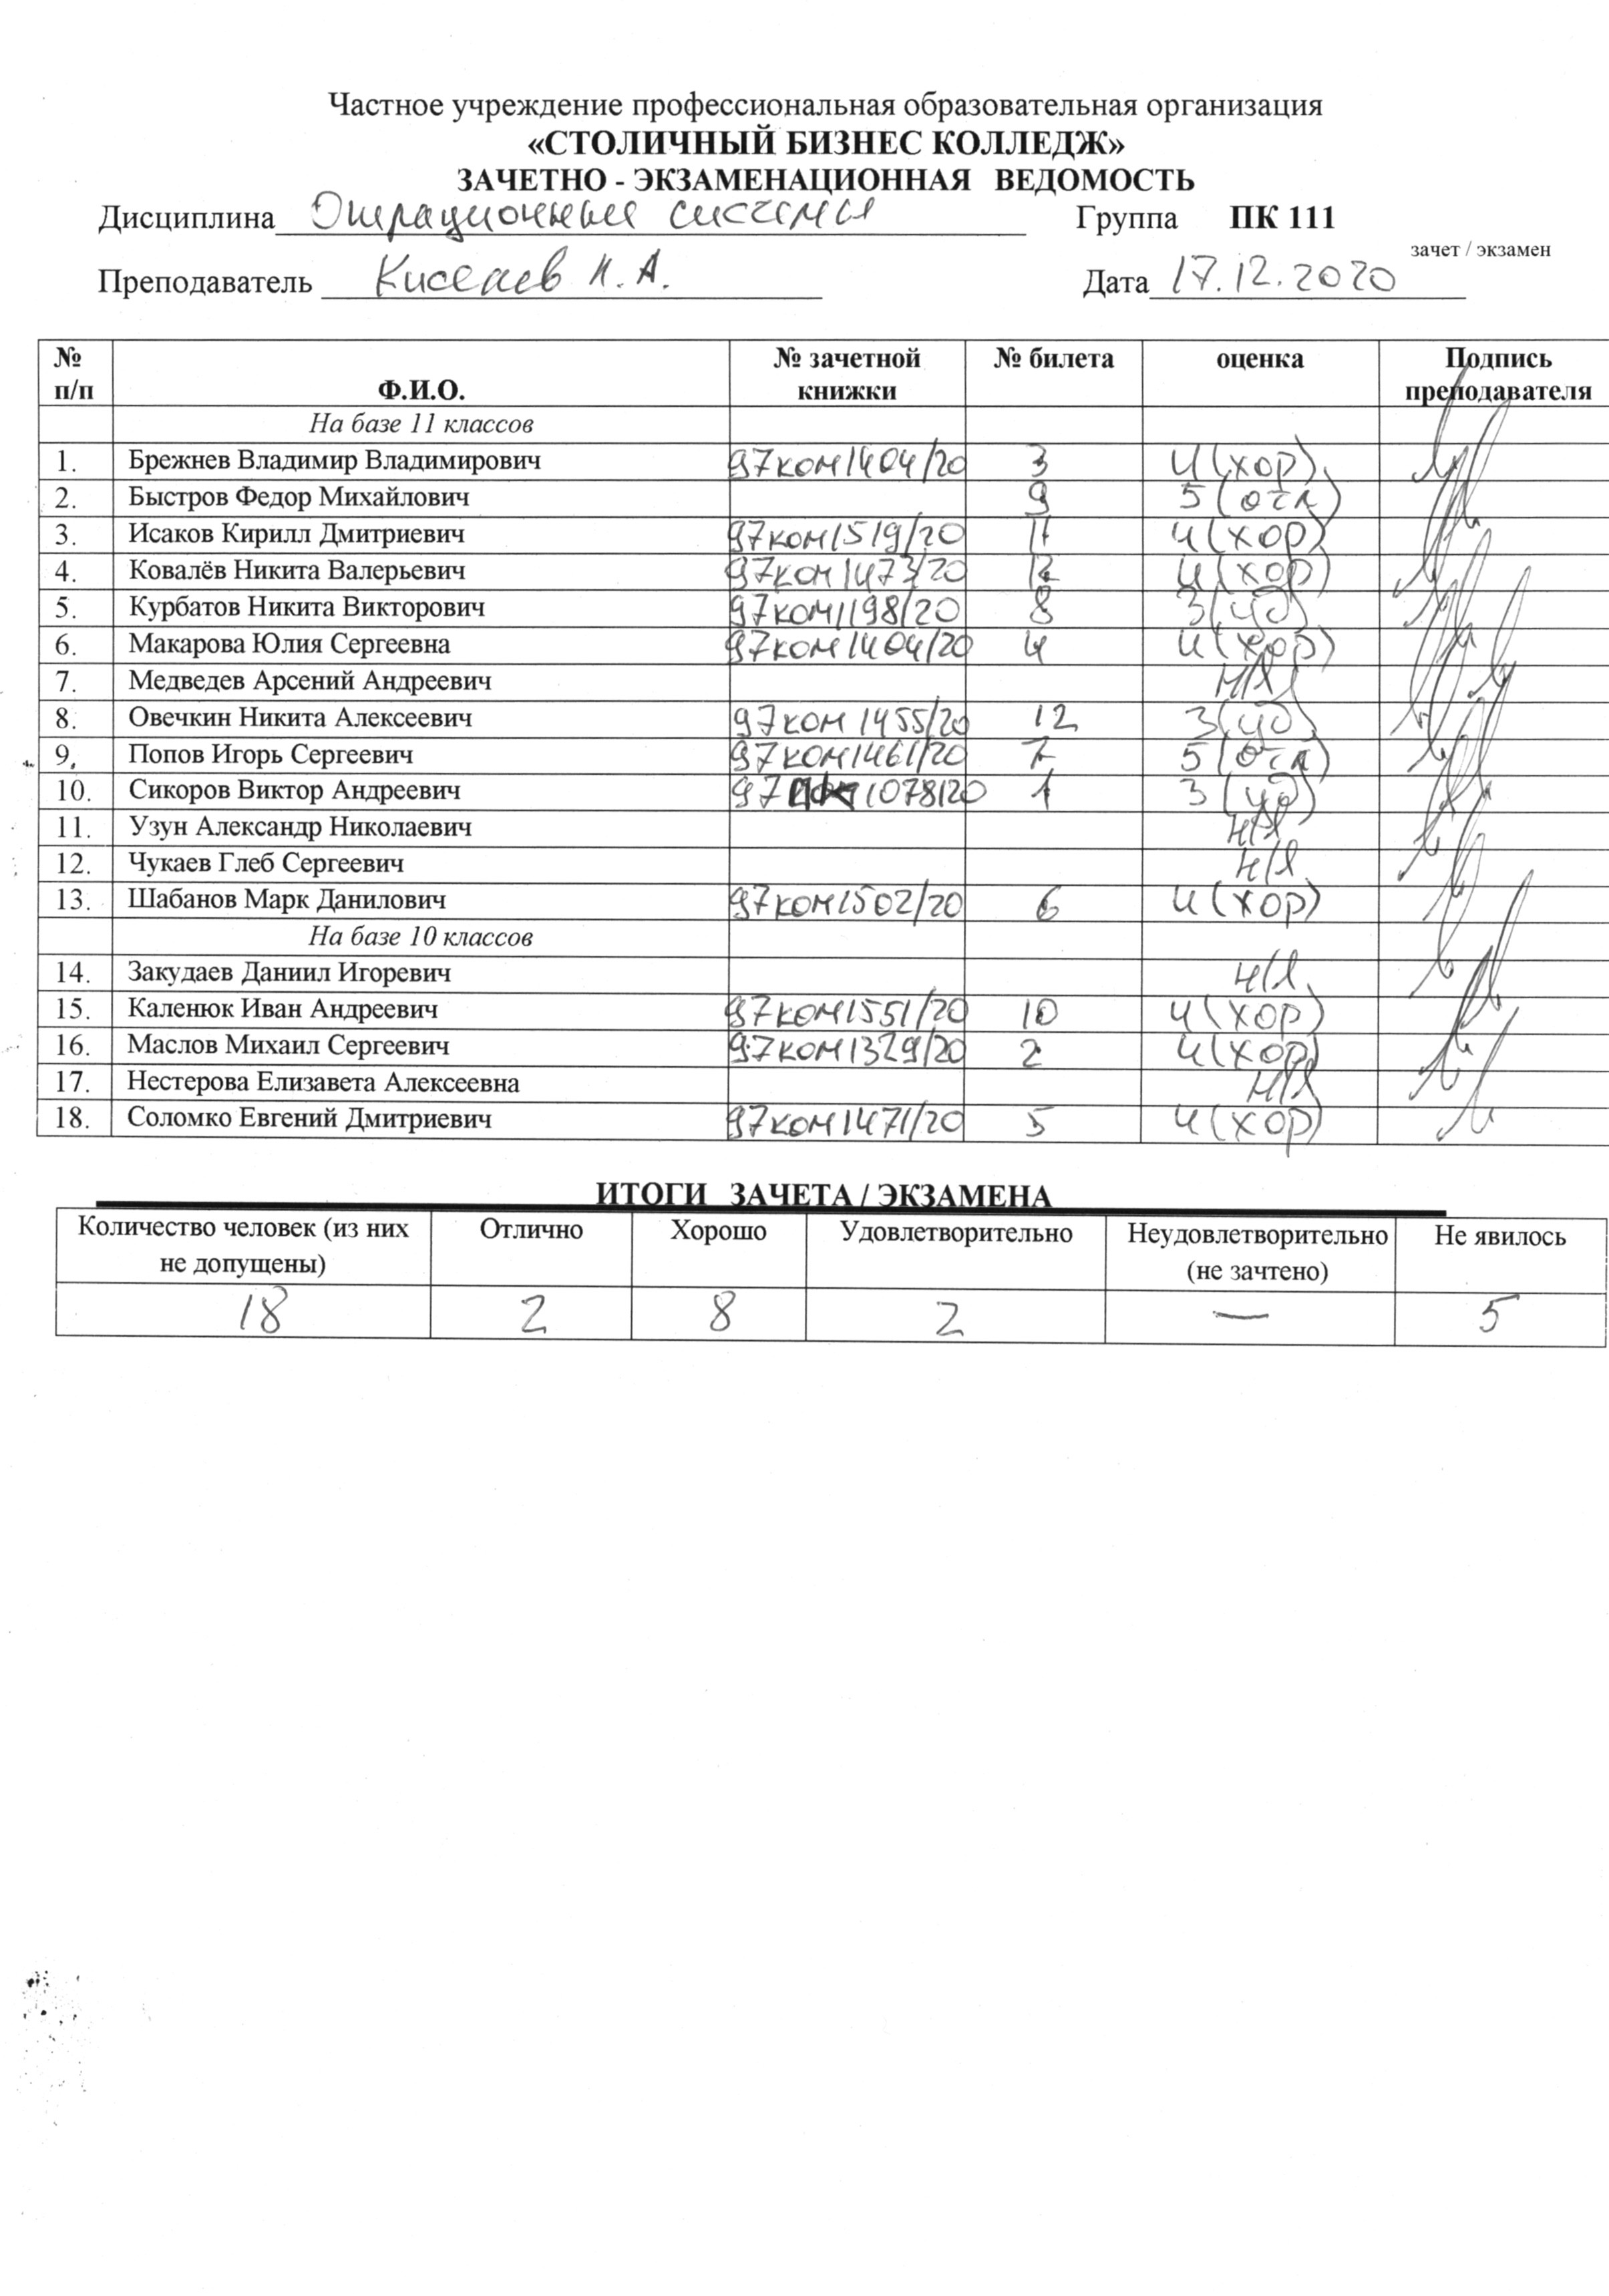 Частное учреждение профессиональная образовательная организация
«СТОЛИЧНЫЙ БИЗНЕС КОЛЛЕДЖ»
ЗАЧЕТНО - ЭКЗАМЕНАЦИОННАЯ ВЕДОМОСТЬ
Дисциплина Операционные системы Группа ПК 111
зачет / экзамен
Преподаватель Киселев Н. А. Дата 17.12.2020
№ п/п Ф.И.О. № зачетной книжки № билета оценка Подпись преподавателя
На базе 11 классов
1. Брежнев Владимир Владимирович 97ком1404/20 3 4 (хор)
2. Быстров Федор Михайлович 9 5 (отл)
3. Исаков Кирилл Дмитриевич 97ком1519/20 11 4 (хор)
4. Ковалёв Никита Валерьевич 97ком1473/20 4 (хор)
5. Курбатов Никита Викторович 97ком1198/20 8 3 (уд)
6. Макарова Юлия Сергеевна 97ком1404/20 4 4 (хор)
7. Медведев Арсений Андреевич н/я
8. Овечкин Никита Алексеевич 97ком 1455/20 12 3 (уд)
9. Попов Игорь Сергеевич 97ком1461/20 7 5 (отл)
10. Сикоров Виктор Андреевич 97 1078/20 1 3 (уд)
11. Узун Александр Николаевич н/я
12. Чукаев Глеб Сергеевич н/я
13. Шабанов Марк Данилович 97ком1502/20 6 4 (хор)
На базе 10 классов
14. Закудаев Даниил Игоревич н/я
15. Каленюк Иван Андреевич 97ком1551/20 10 4 (хор)
16. Маслов Михаил Сергеевич 97ком1329/20 2 4 (хор)
17. Нестерова Елизавета Алексеевна н/я
18. Соломко Евгений Дмитриевич 97ком1471/20 5 4 (хор)
ИТОГИ ЗАЧЕТА / ЭКЗАМЕНА
Количество человек (из них не допущены) Отлично Хорошо Удовлетворительно Неудовлетворительно (не зачтено) Не явилось
18 2 8 2 — 5